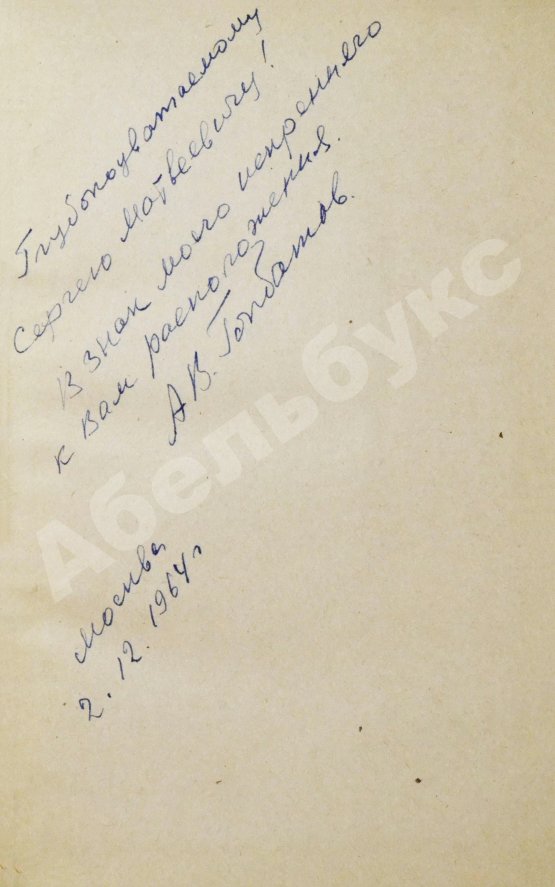 Глубокоуважаемому
Сергею Матвеевичу!
В знак моего искреннего
к Вам расположения.
А.В. Горбатов.
Москва
2.12.1964 г
Абельбукс